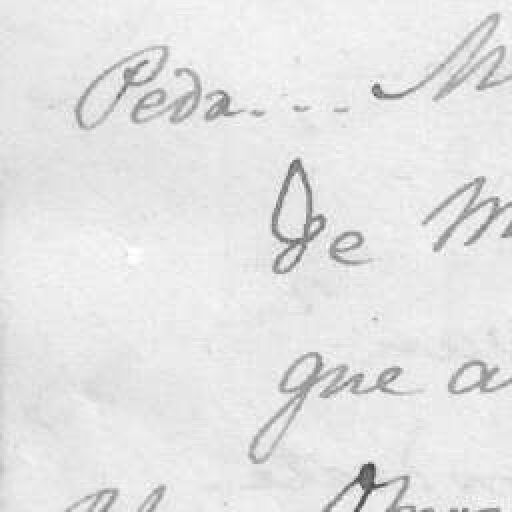 Peda.... M
De M
gne a